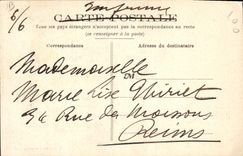 6/6
CARTE POSTALE
Tous les pays étrangers n'acceptent pas la correspondance au recto
(se renseigner à la poste)
Correspondance
Adresse du destinataire
Mademoiselle
Marie Lise Thiriet
Rue de
Reims